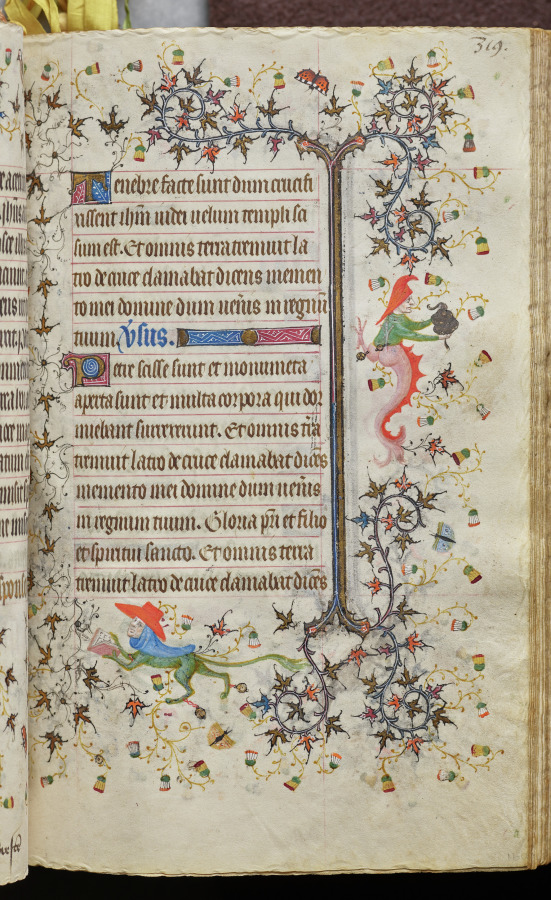 319.
Tenebre facte sunt dum crucifi
xissent ihm iudei uelum templi sci
sum est. Et omnis terra tremuit la
tro de cruce clamabat dicens memen
to mei domine dum uen̄is in regnū
tuum. V̄sus.
Petre scisse sunt et monumēta
aperta sunt et multa corpora qui dor
miebant surrexerunt. Et omnis tr̄a
tremuit latro de cruce clamabat dicēs
memento mei domine dum uen̄is
in regnum tuum. Gloria pr̄i et filio
et spiritui sancto. Et omnis terra
tremuit latro de cruce clamabat dicēs